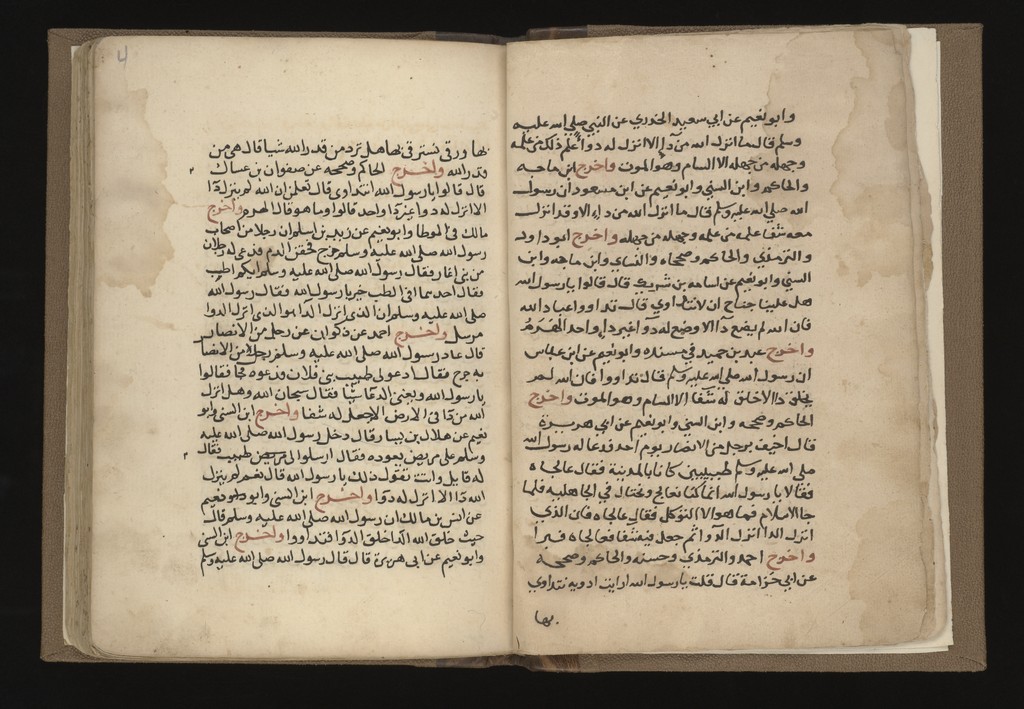 وابو نعيم عن ابي سعيد الخدري عن النبي صلي الله عليه
وسلم قال ما انزل الله من دآ الا انزل له دوآ علم ذلك من علمه
وجهله من جهله الا السام وهو الموت واخرج ابن ماجه
والحاكم وابن السني وابو نعيم عن ابن مسعود ان رسول
الله صلي الله عليه وسلم قال ما انزل الله من داء الا وقد انزل
معه شفا علمه من علمه وجهله من جهله واخرج ابو داود
والترمذي والحاكم وصححاه والنساي وابن ماجه وابن
السني وابو نعيم عن اسامه بن شريك قال قالوا يا رسول الله
هل علينا جناح ان لا نتداوي قال تداووا عباد الله
فان الله لم يضع دآ الا وضع له دوآ غير داء واحد الهرم
واخرج عبد بن حميد في مسنده وابو نعيم عن ابن عباس
ان رسول الله صلي الله عليه وسلم قال تداووا فان الله لم
يخلق دآ الا خلق له شفآ الا السام وهو الموت واخرج
الحاكم وصححه وابن السني وابو نعيم عن ابي هريرة
قال رجل من الانصار يوم احد فدعا له رسول الله
صلي الله عليه وسلم طبيبين كانا بالمدينة فقال عالجاه
فقالا يا رسول الله انما كنا نعالج ونحتال في الجاهليه فلما
جا الاسلام فما هو الا التوكل فقال عالجاه فان الذي
انزل الدآ انزل الدوآ ثم جعل فيه شفآ فعالجاه فبرا
واخرج احمد والترمذي وحسنه والحاكم وصححه
عن ابي خزامة قال قلت يا رسول الله ارايت ادوية نتداوي
بها
4
بها ورقي نسترقي بها هل ترد من قدر الله شيا قال هي من
قدر الله واخرج الحاكم وصححه عن صفوان بن عسال
قال قالوا يا رسول الله انتداوي قال تعلمن ان الله لم ينزل دآ
الا انزل له دوآ غير دآ واحد قالوا وما هو قال الهرم واخرج
مالك في الموطا وابو نعيم عن زيد بن اسلم ان رجلا من اصحاب
رسول الله صلي الله عليه وسلم جرح فحقن الدم فدعي له رجلان
من بني انمار فقال رسول الله صلي الله عليه وسلم ايكم اطب
فقال احدهما افي الطب خير يا رسول الله فقال رسول الله
صلي الله عليه وسلم ان الذي انزل الدا هو الذي انزل الدوا
مرسل واخرج احمد عن ذكوان عن رجل من الانصار
قال عاد رسول الله صلي الله عليه وسلم رجلا من الانصا
به جرح فقال ادعو لي طبيب بني فلان فدعوه فجا فقالوا
يا رسول الله ويغني الدوا شيا فقال سبحان الله وهل انزل
الله من دآ في الارض الا جعل له شفا واخرج ابن السني وابو
نعيم عن هلال بن يساف قال دخل رسول الله صلي الله عليه
وسلم علي مريض يعوده فقال ارسلوا الي طبيب فقال
له قايل وانت تقول ذلك يا رسول الله قال نعم لم ينزل
الله دآ الا انزل له دوا واخرج ابن السني وابو نعيم
عن انس بن مالك ان رسول الله صلي الله عليه وسلم قال
حيث خلق الله الدا خلق الدوا فتداووا واخرج ابن السني
وابو نعيم عن ابي هريرة قال قال رسول الله صلي الله عليه وسلم